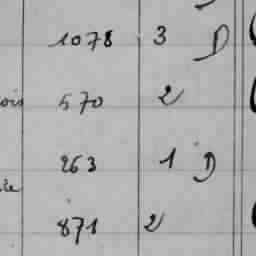 1078 3 D
ois 570 2
263 1 D
871 2